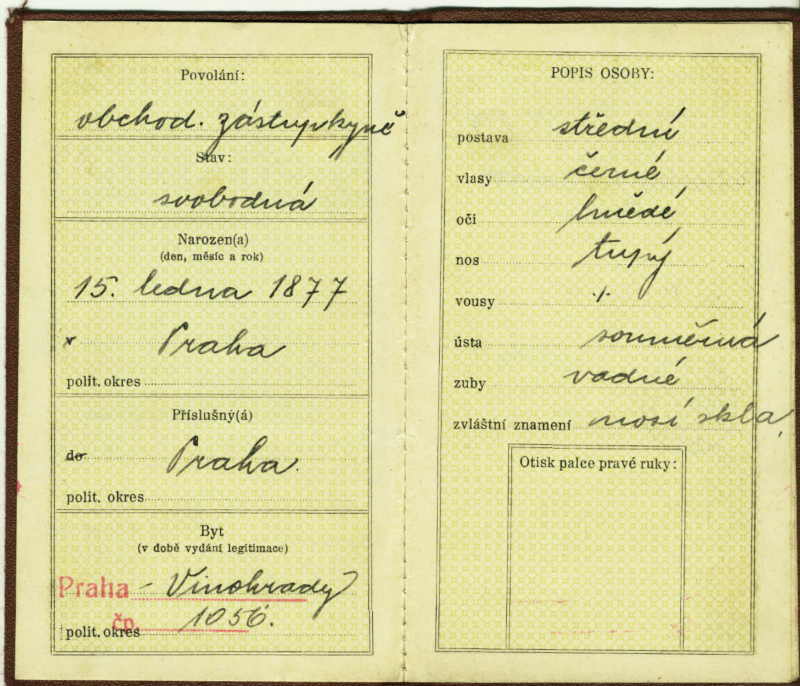 Povolání:
obchod. zástupkyně
Stav:
svobodná
Narozen(a)
(den, měsíc a rok)
15. ledna 1877
v Praha
polit. okres
Příslušný(á)
do Praha.
polit. okres
Byt
(v době vydání legitimace)
Praha - Vinohrady
čp. 1056.
polit. okres
POPIS OSOBY:
postava střední
vlasy černé
oči hnědé
nos tupý
vousy ./.
ústa souměrná
zuby vadné
zvláštní znamení nosí skla.
Otisk palce pravé ruky: